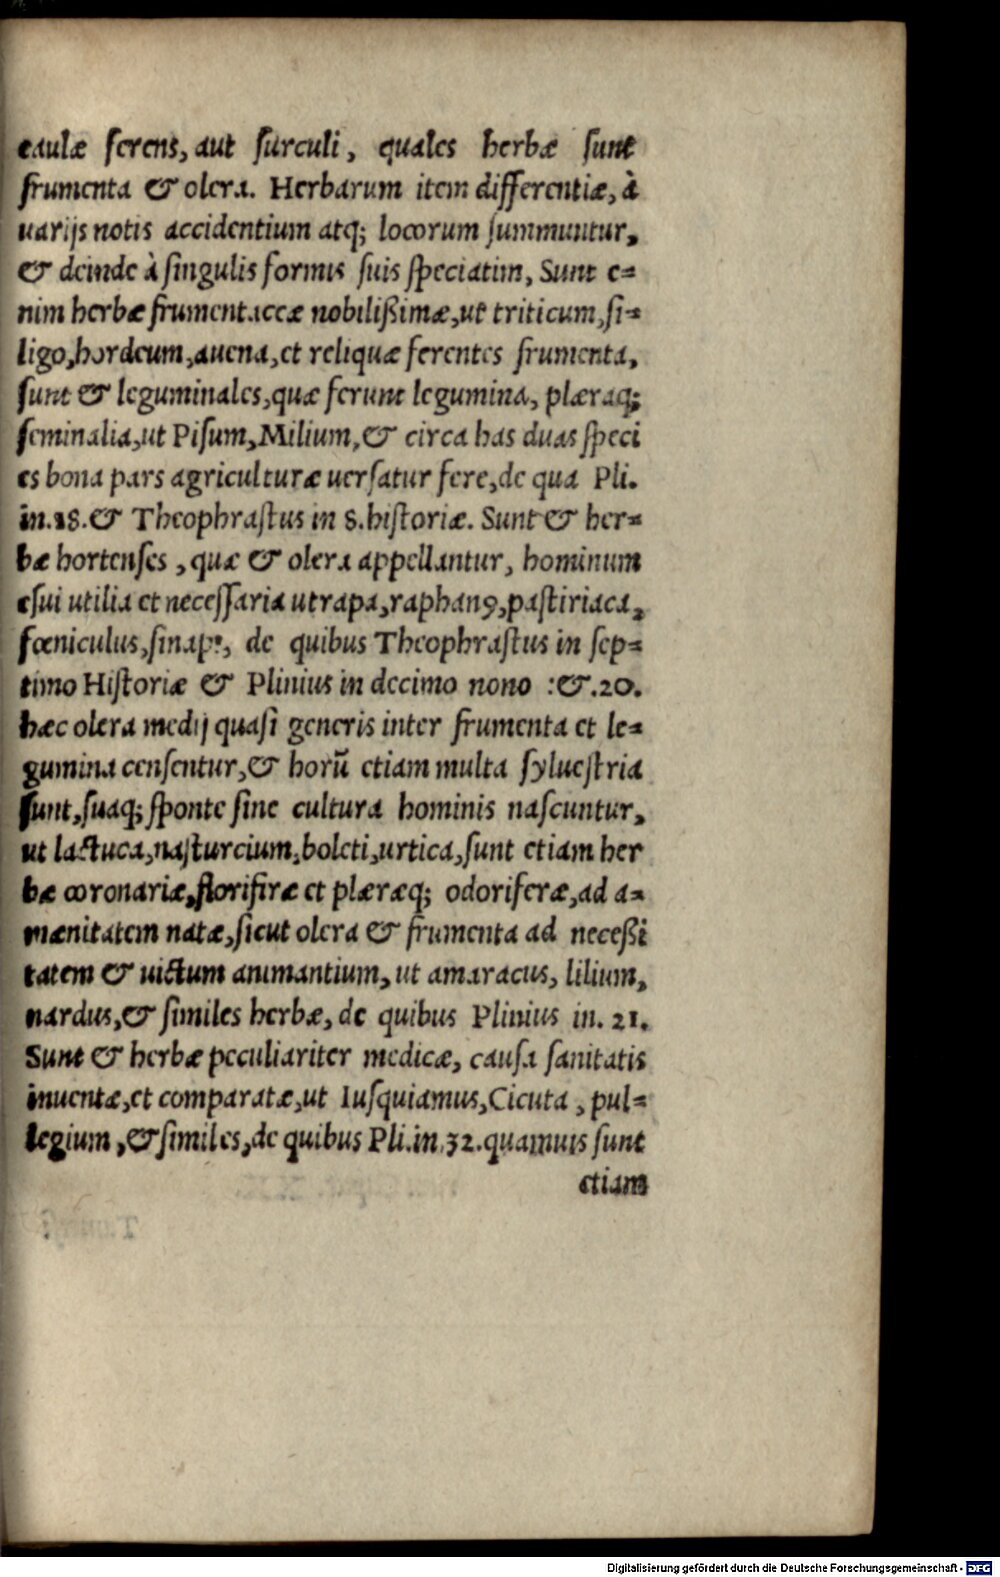 caulæ ferens, aut surculi, quales herbæ sunt
frumenta & olera. Herbarum item differentiæ, à
uarijs notis accidentium atq; locorum summuntur,
& deinde à singulis formis suis speciatim, Sunt e=
nim herbæ frumentaceæ nobilißimæ, ut triticum, si=
ligo, hordeum, auena, et reliquæ ferentes frumenta,
sunt & leguminales, quæ ferunt legumina, plæraq;
seminalia, ut Pisum, Milium, & circa has duas speci
es bona pars agriculturæ uersatur fere, de qua Pli.
in. 18. & Theophrastus in 8. historiæ. Sunt & her=
bæ hortenses, quæ & olera appellantur, hominum
esui utilia et necessaria ut rapa, raphanꝰ, pastiriaca,
fœniculus, sinap, de quibus Theophrastus in sep=
timo Historiæ & Plinius in decimo nono :&. 20.
hæc olera medij quasi generis inter frumenta et le=
gumina censentur, & horū etiam multa syluestria
sunt, suaq; sponte sine cultura hominis nascuntur,
ut lactuca, nasturcium, boleti, urtica, sunt etiam her
bæ coronariæ, florifiræ et plæræq; odoriferæ, ad a=
mænitatem natæ, sicut olera & frumenta ad neceßi
tatem & uictum animantium, ut amaracus, lilium,
nardus, & similes herbæ, de quibus Plinius in. 21.
Sunt & herbæ peculiariter medicæ, causa sanitatis
inuentæ, et comparatæ, ut Iusquiamus, Cicuta, pul=
legium, & similes, de quibus Pli. in. 32. quamuis sunt
etiam
Digitalisierung gefördert durch die Deutsche Forschungsgemeinschaft - DFG